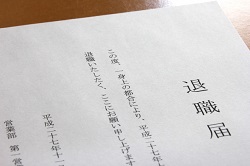 退職届
この度、一身上の都合により、平成二
退職いたしたく、ここにお願い申し上げます
平成二十七年十一
営業部 第一営